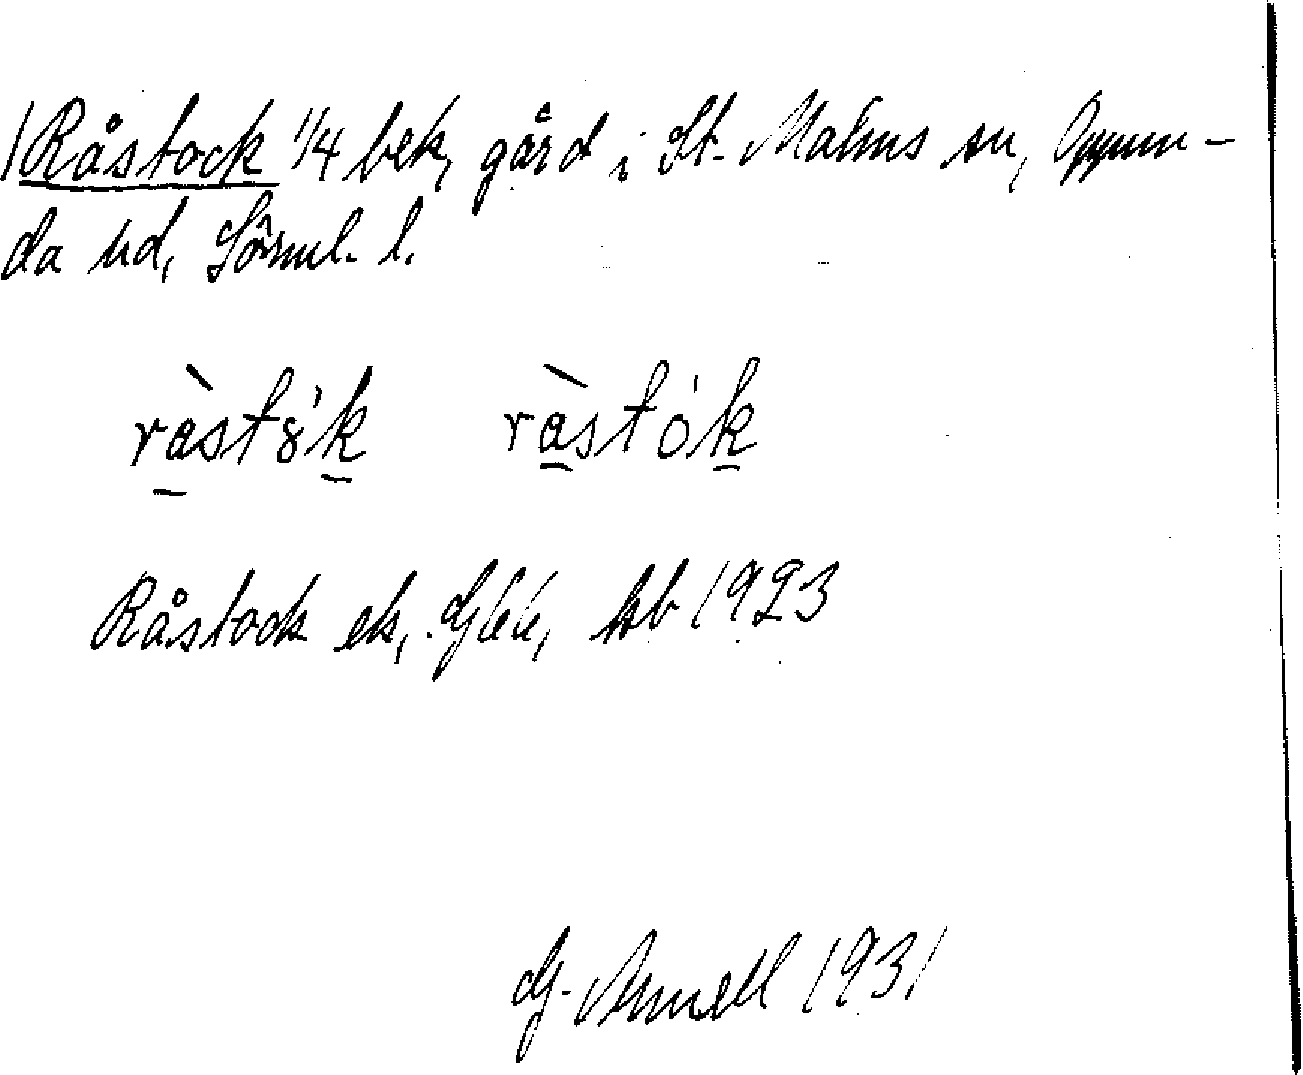 Råstock 1/4 bek, gård i St. Malms sn, Oppun-
da hd, Sörml. l.
ràst8́k ràstók
Råstock ek, Gek, kb 1923
G. Arnell 1931